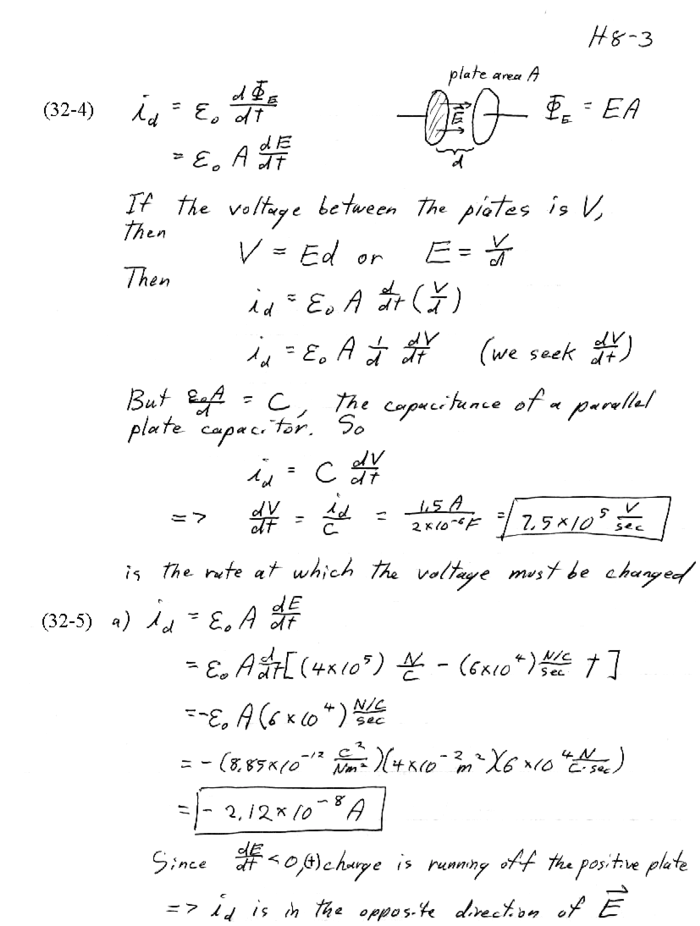 H8-3
plate area A
(32-4) i_d = ε₀ dΦ_E/dt
E⃗
Φ_E = EA
= ε₀ A dE/dt
d
If the voltage between the plates is V,
then
V = Ed or E = V/d
Then
i_d = ε₀ A d/dt (V/d)
i_d = ε₀ A 1/d dV/dt (we seek dV/dt)
But ε₀A/d = C, the capacitance of a parallel
plate capacitor. So
i_d = C dV/dt
=> dV/dt = i_d/C = 1.5 A/2×10⁻⁶F = 7.5×10⁵ V/sec
is the rate at which the voltage must be changed
(32-5) a) i_d = ε₀ A dE/dt
= ε₀ A d/dt [(4×10⁵) N/C - (6×10⁴) N/C/sec t]
= -ε₀ A (6×10⁴) N/C/sec
= -(8.85×10⁻¹² C²/Nm²)(4×10⁻²m²)(6×10⁴ N/C·sec)
= -2.12×10⁻⁸ A
Since dE/dt < 0, (+) charge is running off the positive plate
=> i_d is in the opposite direction of E⃗